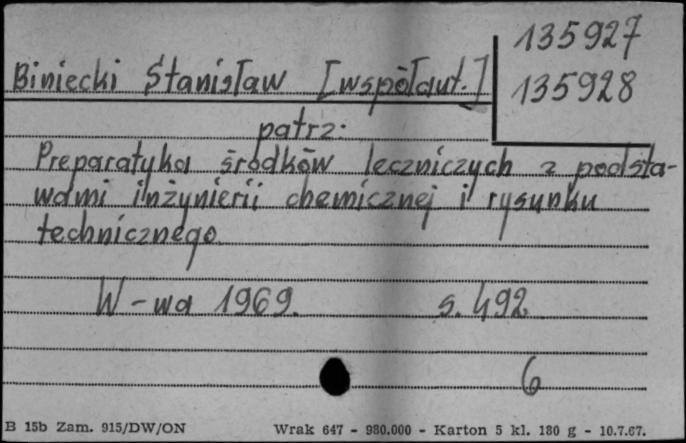 135927
Biniecki Stanisław [współaut.]
135928
patrz:
Preparatyka środków leczniczych z podsta-
wami inżynierii chemicznej i rysunku
technicznego.
W-wa 1969. s. 492
6
B 15b Zam. 915/DW/ON Wrak 647 - 980.000 - Karton 5 kl. 180 g - 10.7.67.